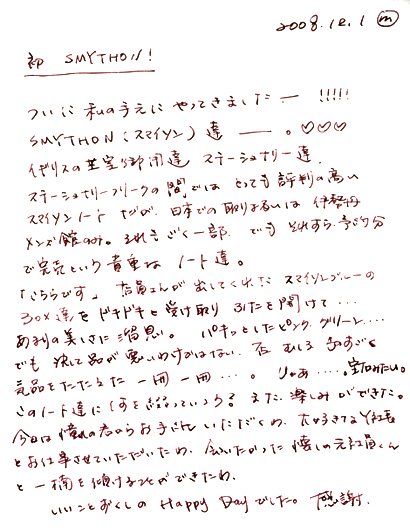 2008.12.1 ⓜ
初 SMYTHON!
ついに私の手元にやってきました ー !!!!!
SMYTHON (スマイソン) 達 ー 。♡♡♡
イギリスの王室御用達 ステーショナリー達、
ステーショナリーフリークの間では とっても評判の高い
スマイソンノート ですが、日本での取りあつかいは 伊勢丹
メンズ館のみ。それもごく一部。でも それすら 予約分
で完売という 貴重な ノート達。
「こちらです」 店員さんが 出してくれた スマイソンブルーの
BOX達を ドキドキと 受け取り ふたを開けて ・・・
あまりの美しさに 溜息。 パキッとしたピンク、グリーン・・・・
でも 決して品が悪いわけではない。 むしろ ものすごく
気品をたたえた 一冊一冊・・・。 じゃあ・・・・。宝物みたい。
このノート達に 何を綴っていこう? また、楽しみができた。
今日は 憧れの君から お手に いただくわ、大好きなY社長
とお仕事させていただいたわ、会いたかった 懐しの元社員くん
と 一緒を傾けることができたわ、
いいことづくしの Happy Dayでした。 感謝.